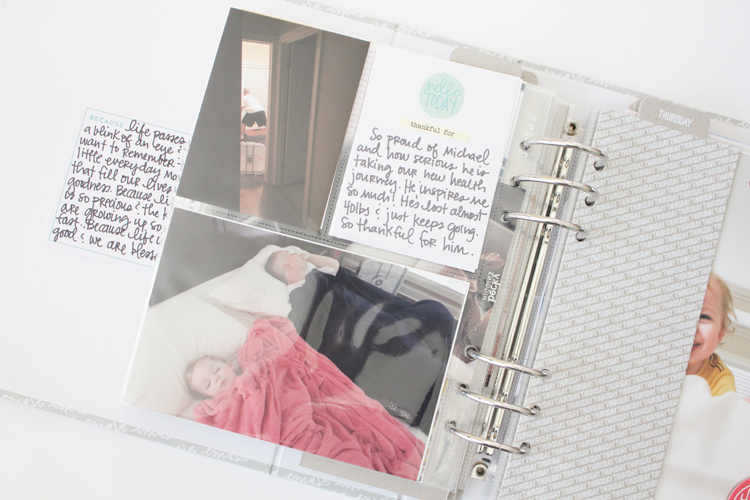 BECAUSE life passes
a blink of an eye :
want to remember
little everyday mo
that fill our lives
goodness. Because li
is so precious : the k
are growing up so
fast. Because life i
good : we are bless
hello
TODAY
thankful for
So proud of Michael
and how serious he is
taking our new health
journey. He inspires me
so much! He's lost almost
40lbs : just keeps going.
So thankful for him.
THURSDAY